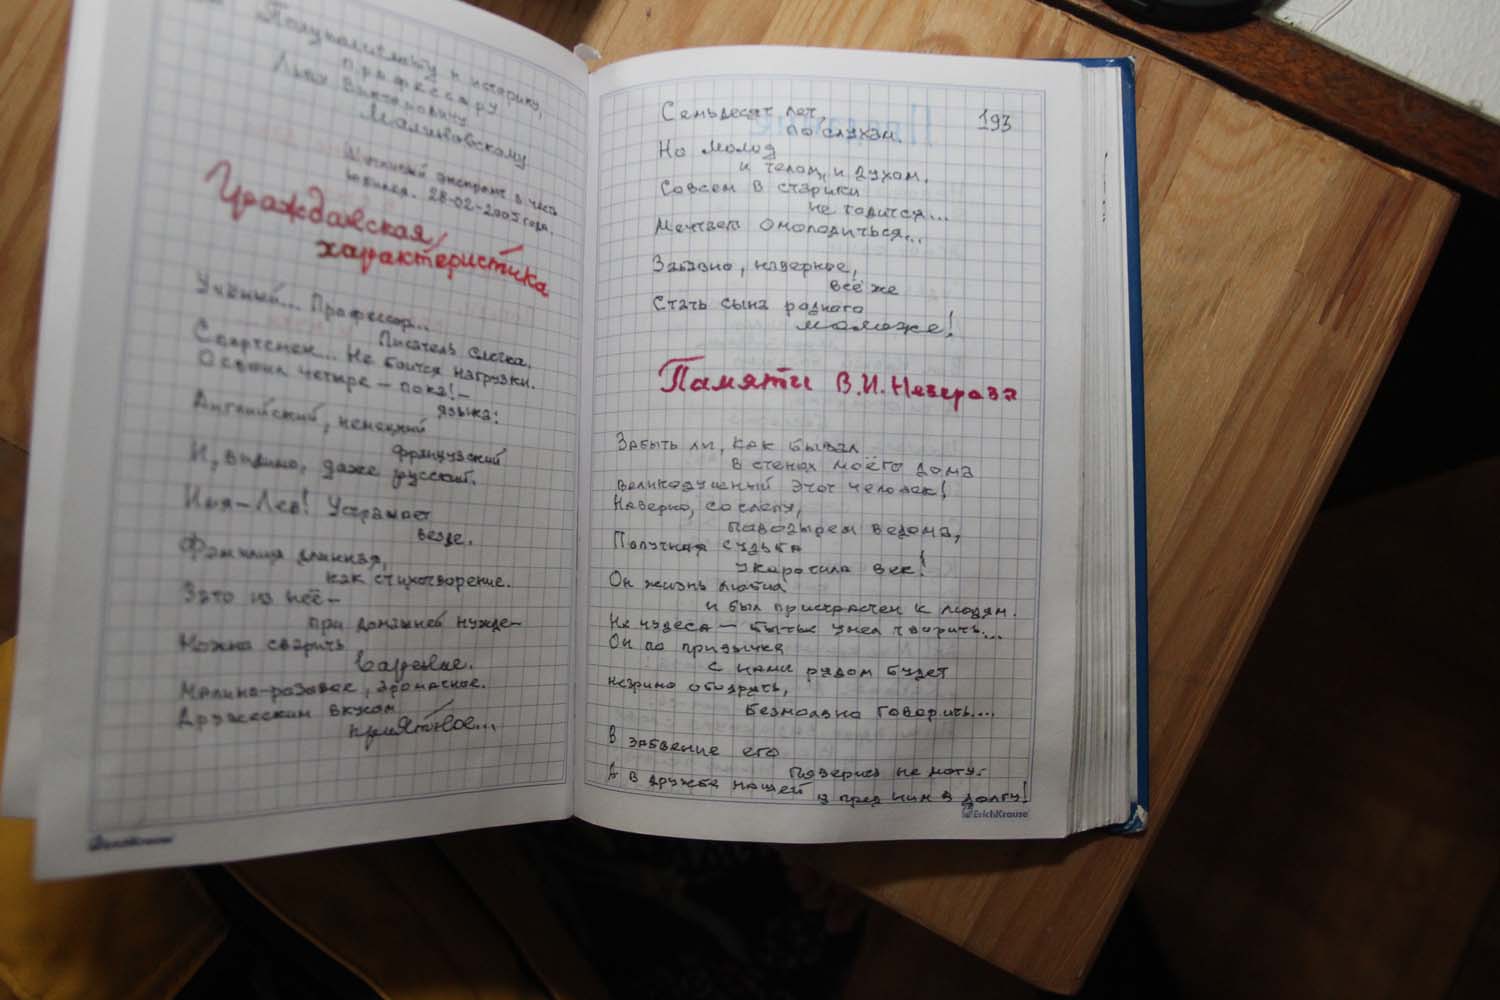 Полуполиглоту и историку,
профессору
Льву Викторовичу
Малиновскому
Шуточный экспромт в честь
юбилея. 28-02-2005 года.
Гражданская
характеристика
Учёный... Профессор...
Писатель слегка.
Спортсмен... Не боится нагрузки.
Освоил четыре – пока! –
языка:
Английский, немецкий
французский
И, видимо, даже русский.
Имя – Лев! Устрашает
везде.
Фамилия длинная,
как стихотворение.
Зато из неё –
при домашней нужде –
Можно сварить
варенье.
Малино-розовое, ароматное.
Дружеским вкусом
приятное...
ErichKrause
193
Семьдесят лет,
по слухам.
Но молод
и телом, и духом.
Совсем в старики
не годится...
Мечтает омолодиться...
Забавно, наверное,
всё же
Стать сына родного
моложе!
Памяти В.И. Неверова
Забыть ли, как бывал
в стенах моего дома
великодушный этот человек!
Наверно, сослепу,
поводырем ведома,
Попутная судьба
укоротила век!
Он жизнь любил
и был пристрастен к людям.
Не чудеса – бытье умел творить...
Он по привычке
с нами рядом будет
незримо ободрять,
безмолвно говорить...
В забвение его
поверить не могу.
А в дружбе нашей я пред ним в долгу!
ErichKrause